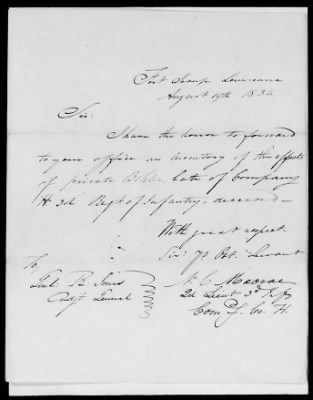 Fort Jesup Louisiana
August 19th 1834
Sir:
I have the honor to forward
to your office an inventory of the effects
of private late of Company
H 3d Regt of Infantry, deceased—
With great respect
Sir: Yr Obt. Servant
To
Adjt. General
2d Lieut 3d Infy
Com'g Co. H.